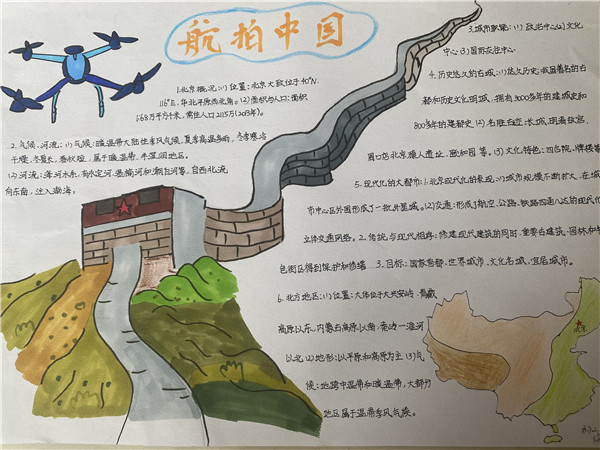 航拍中国
1.北京概况:(1)位置:北京大致位于40°N,
116°E,华北平原西北角。(2)面积与人口:面积
1.68万平方千米,常住人口2115万(2013年)。
2.气候、河流:(1)气候:暖温带大陆性季风气候,夏季高温多雨,冬季寒冷
干燥,冬夏长,春秋短,属于暖温带、半湿润地区。
(2)河流:海河水系,有永定河、潮白河等,自西北流
向东南,注入渤海。
3.城市职能:(1)政治中心(2)文化
中心(3)国际交往中心。
4.历史悠久的古城:(1)悠久历史:我国著名的古
都和历史文化名城,拥有3000多年的建城史和
800多年的建都史。(2)名胜古迹:长城,明清故宫,
周口店北京猿人遗址,颐和园等。(3)文化特色:四合院,牌楼等
5.现代化的大都市:1.北京现代化的表现:(1)城市规模不断扩大,在城
市中心区外围形成了一批卫星城。(2)交通:形成了航空、公路、铁路四通八达的现代化
立体交通网络。2.传统与现代相辉:修建现代建筑的同时,重要古建筑、园林和特
色街区得到保护和修缮 3.目标:国家首都,世界城市,文化名城,宜居城市。
6.北方地区:(1)位置:大体位于大兴安岭,青藏
高原以东,内蒙古高原以南,秦岭—淮河
以北 (2)地形:以平原和高原为主 (3)气
候:地跨中温带和暖温带,大部分
地区属于温带季风气候。
北京